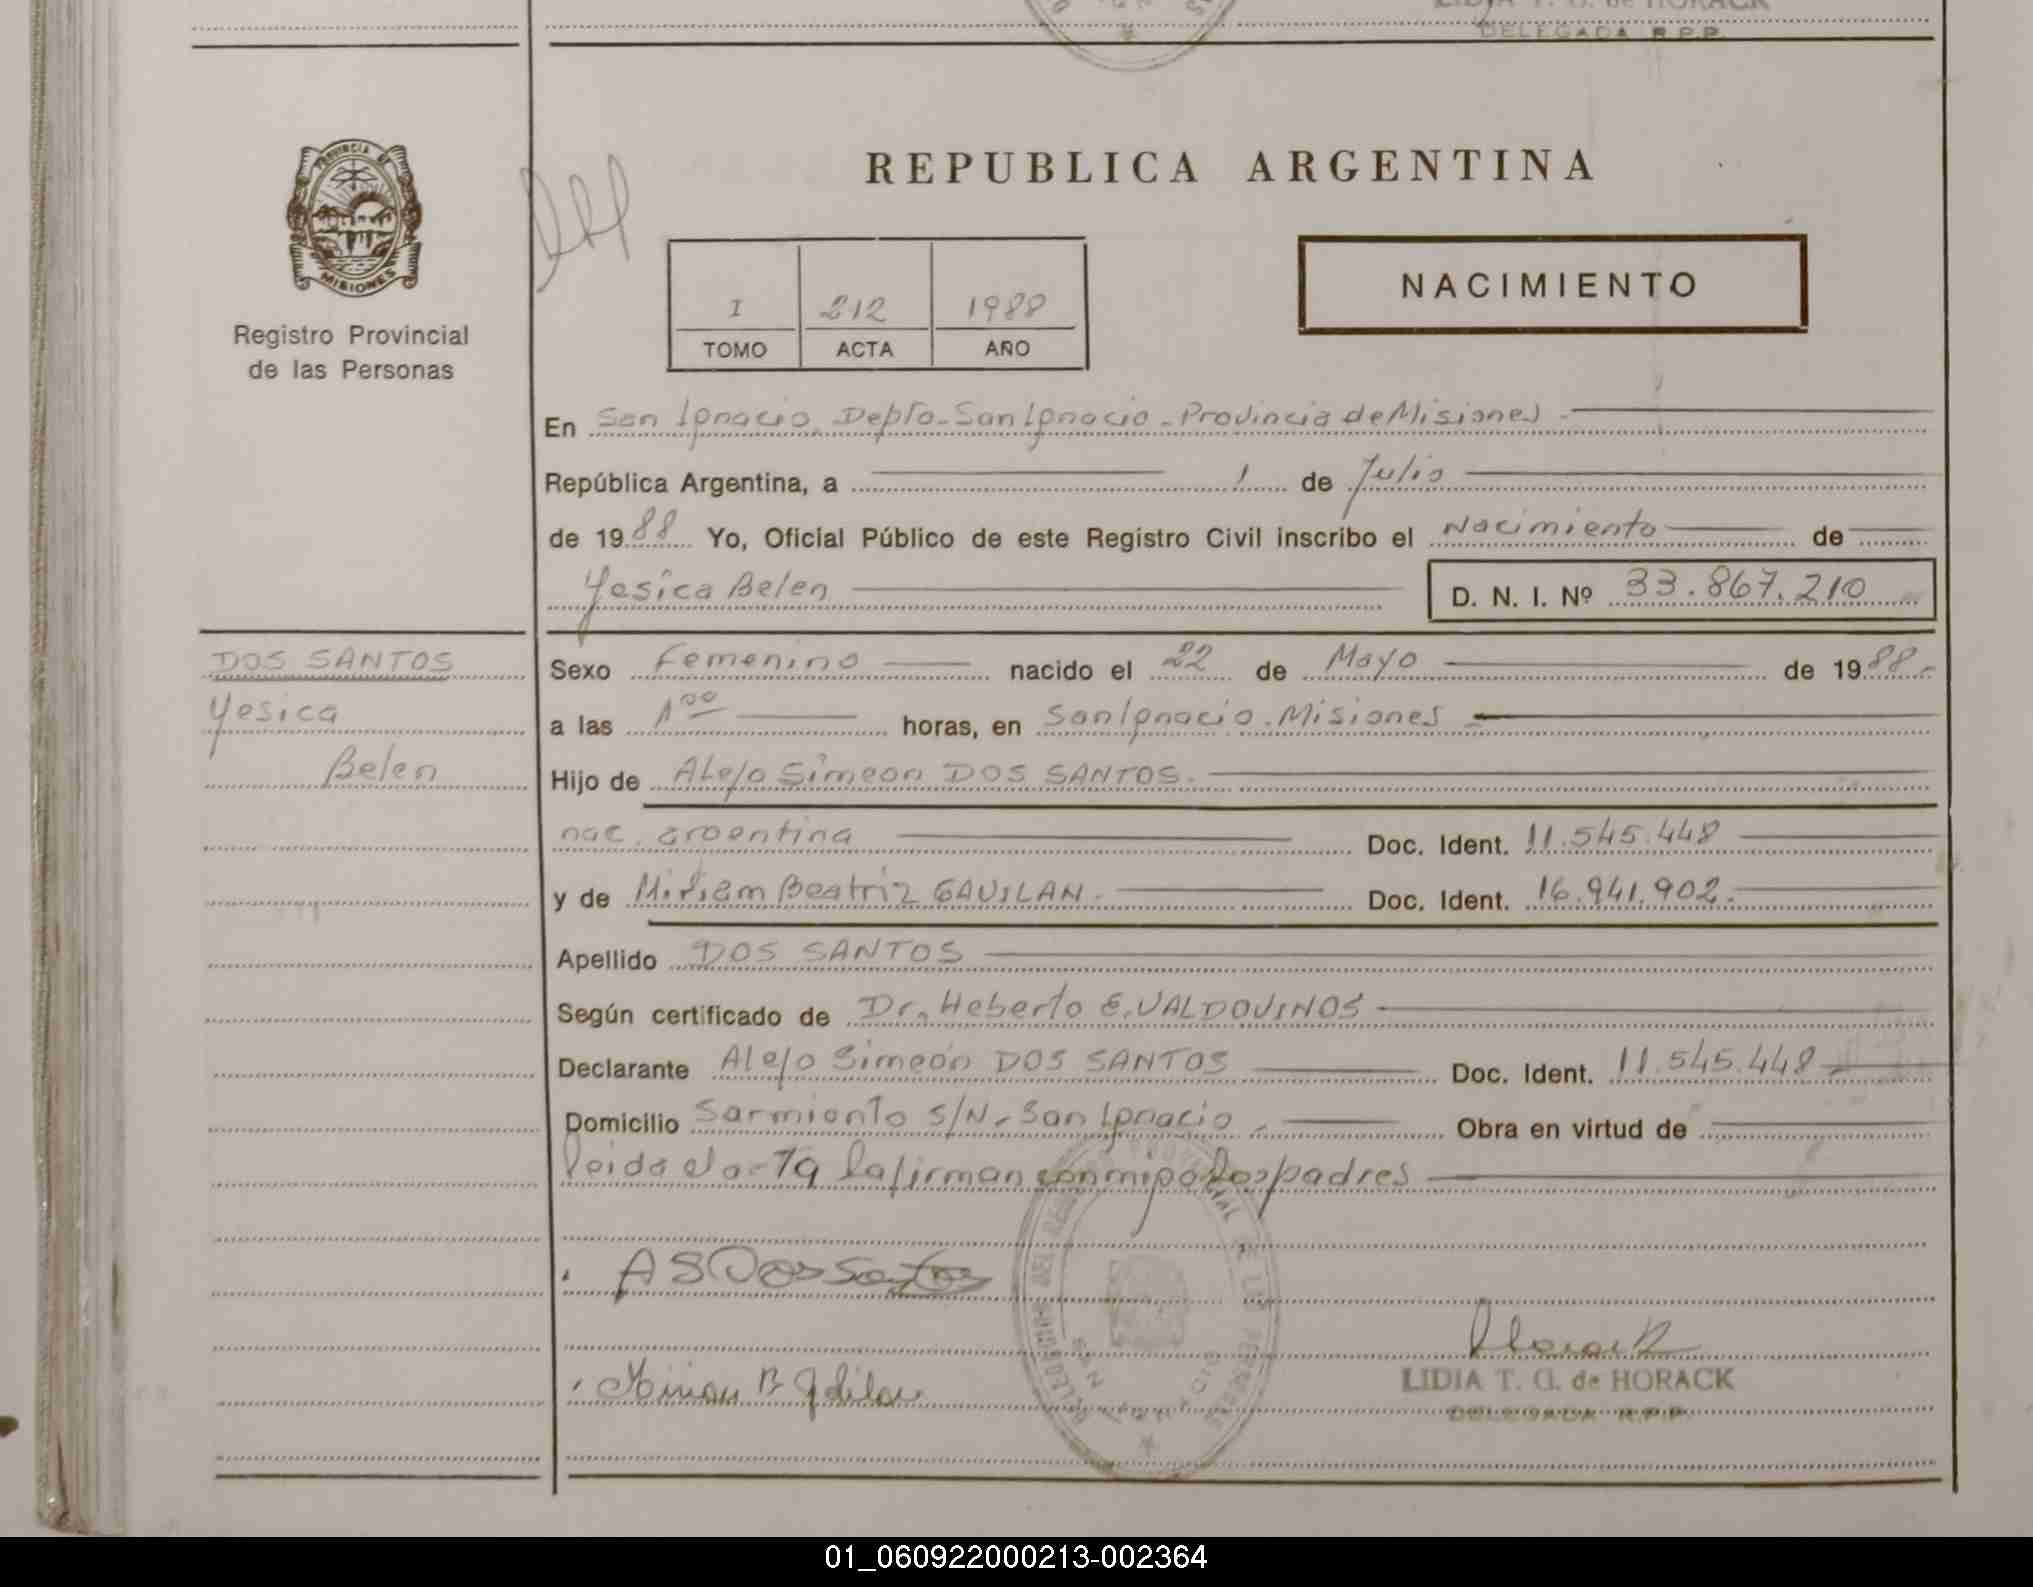 LIDIA T. G. de HORACK
DELEGADA R.P.P.
PROVINCIA DE
MISIONES
Registro Provincial
de las Personas
REPUBLICA ARGENTINA
NACIMIENTO
I 212 1988
TOMO ACTA AÑO
En San Ignacio. Depto. San Ignacio. Provincia de Misiones
República Argentina, a 1 de Julio
de 1988 Yo, Oficial Público de este Registro Civil inscribo el Nacimiento de
Yesica Belen D. N. I. Nº 33.867.210
DOS SANTOS
Yesica
Belen
Sexo Femenino nacido el 22 de Mayo de 1988.
a las 1 00 horas, en San Ignacio. Misiones
Hijo de Alejo Simeon DOS SANTOS.
nac. argentina Doc. Ident. 11.545.448
y de Miriam Beatriz GAVILAN. Doc. Ident. 16.941.902.
Apellido DOS SANTOS
Según certificado de Dr. Heberto E. VALDOVINOS
Declarante Alejo Simeón DOS SANTOS Doc. Ident. 11.545.448
Domicilio Sarmiento S/N. San Ignacio. Obra en virtud de
leida el acta la firman conmigo los padres
A S Dos Santos
Horack
LIDIA T. G. de HORACK
DELEGADA R.P.P.
01_060922000213-002364